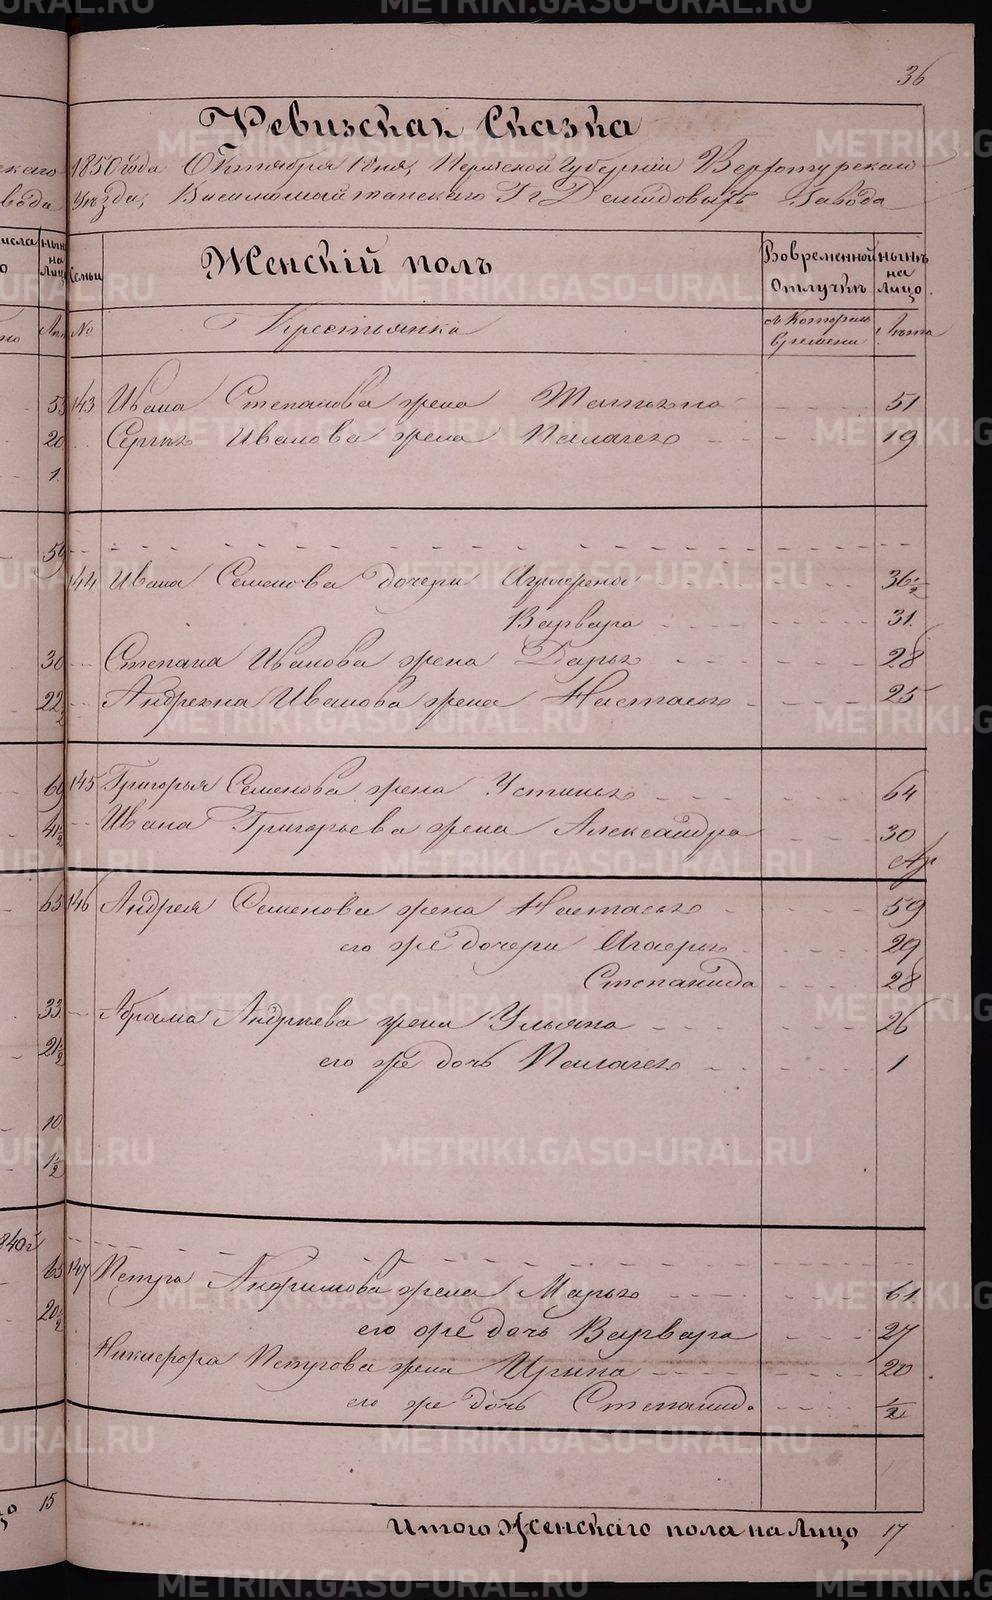 36
Ревизская Сказка
1850 года Октября 1 дня, Пермской Губернии Верхотурскаго
Уезда, Висимошайтанскаго Гг Демидовыхъ Завода
Семьи
Женскій полъ
Вовременной отлучкѣ
Нынѣ на Лицо
№
Крестьянка
Съ Котораго времени
Лѣта
143 Ивана Степанова жена Татьяна 51
Сергея Иванова жена Пелагея 19
144 Ивана Семенова дочери Аграфена 36 1/2
Варвара 31
Степана Иванова жена Дарья 28
Андреяна Иванова жена Настасья 25
145 Григорья Семенова жена Устинья 64
Ивана Григорьева жена Александра 30
146 Андрея Семенова жена Настасья 59
его же дочери Агафья 29
Степанида 28
Абрама Андреева жена Ульяна 26
его же дочь Пелагея 1
147 Петра Анфимова жена Марья 61
его же дочь Варвара 27
Никифора Петрова жена Ирина 20
его же дочь Степанид. 1/2
Итого Женскаго пола на Лицо 17
METRIKI.GASO-URAL.RU